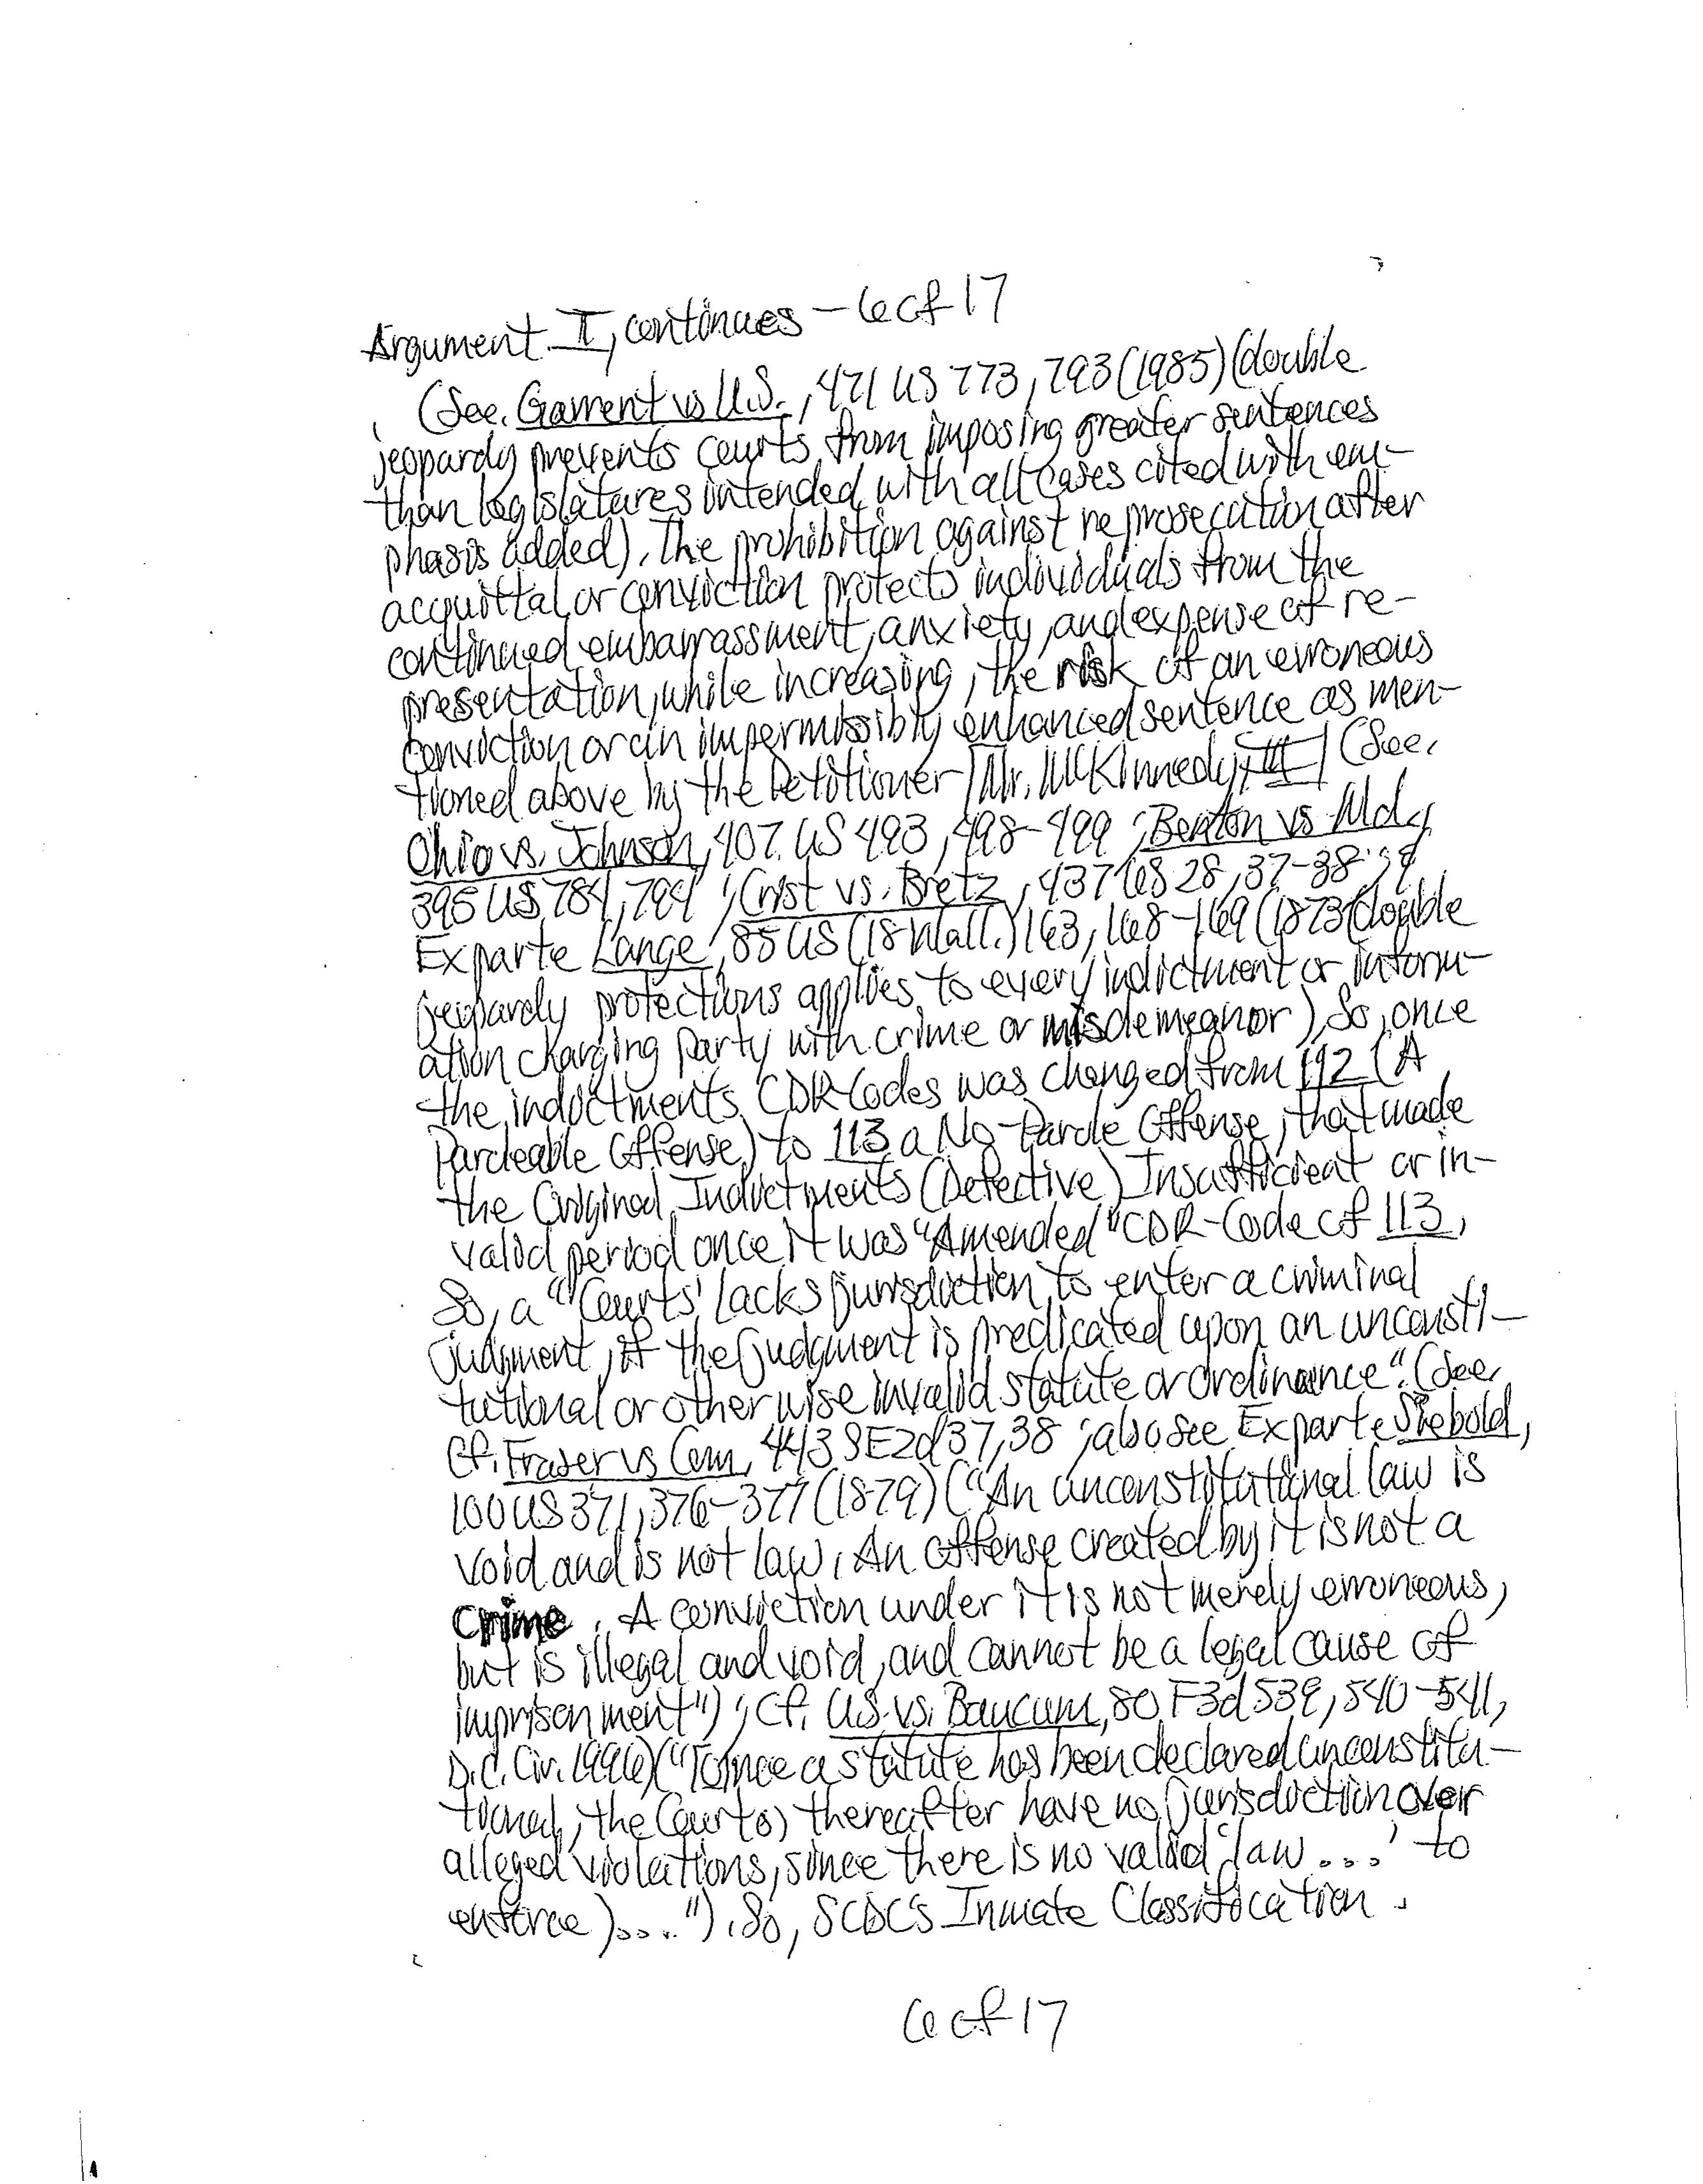 Argument I, continues - 6 of 17
(See, Garrent vs U.S., 471 US 773, 793 (1985) (double
jeopardy prevents courts from imposing greater sentences
than legislatures intended, with all cases cited with em-
phasis added). The prohibition against reprosecution after
acquittal or conviction protects individuals from the
continued embarrassment, anxiety, and expense of re-
presentation, while increasing, the risk of an erroneous
conviction or an impermissibly enhanced sentence as men-
tioned above by the Petitioner [Mr. McKinnedy, III] (See,
Ohio vs. Johnson, 407 US 493, 498-499 ; Benton vs Md.,
395 US 784, 794 ; Crist vs. Bretz, 437 US 28, 37-38 ; &
Exparte Lange, 85 US (18 Wall.) 163, 168-169 (1873 (double
jeopardy protections applies to every indictment or inform-
ation charging party with crime or misdemeanor). So, once
the indictments CDR-Codes was changed from 112 (A
Paroleable Offense) to 113 a No-Parole Offense, that made
the Original Indictments (Defective) Insufficient or in-
valid period once it was "Amended" CDR-Code of 113,
So, a "'Courts' lacks jurisdiction to enter a criminal
judgment, if the judgment is predicated upon an unconsti-
tutional or otherwise invalid statute or ordinance". (See,
Cf. Fraser vs Com, 443 SE2d 37, 38 ; also see Exparte Siebold,
100 US 371, 376-377 (1879) ("An unconstitutional law is
void and is not law. An offense created by it is not a
crime. A conviction under it is not merely erroneous,
but is illegal and void, and cannot be a legal cause of
imprisonment") ; Cf. US. vs. Baucum, 80 F3d 539, 540-541,
D.C. Cir. 1996) ("[O]nce a statute has been declared unconstitu-
tional, the Courts) thereafter have no jurisdiction over
alleged violations, since there is no valid 'law ...' to
enforce)...."). So, SCDC's Inmate Classification
6 of 17